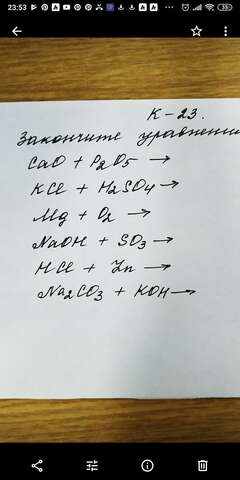 23:53
35
К-23.
Закончите уравнени
CaO + P2O5 →
KCl + H2SO4 →
Mg + O2 →
NaOH + SO3 →
HCl + Zn →
Na2CO3 + KOH →